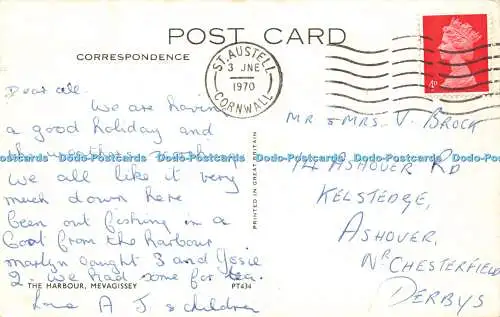 POST CARD
CORRESPONDENCE
ST. AUSTELL
3 JNE
1970
CORNWALL
4P
Dear all.
We are having
a good holiday and
the weather
we all like it very
much down here
been out fishing in a
boat from the harbour
martyn caught 3 and Josie
2. we had some for tea.
love A J & children
THE HARBOUR, MEVAGISSEY
PT434
PRINTED IN GREAT BRITAIN
MR & MRS. V. BROCK
14 ASHOVER RD
KELSTEDGE,
ASHOVER,
NR CHESTERFIELD
DERBYS
Dodo-Postcards Dodo-Postcards Dodo-Postcards Dodo-Postcards Dodo-Postcards Dodo-Postcards